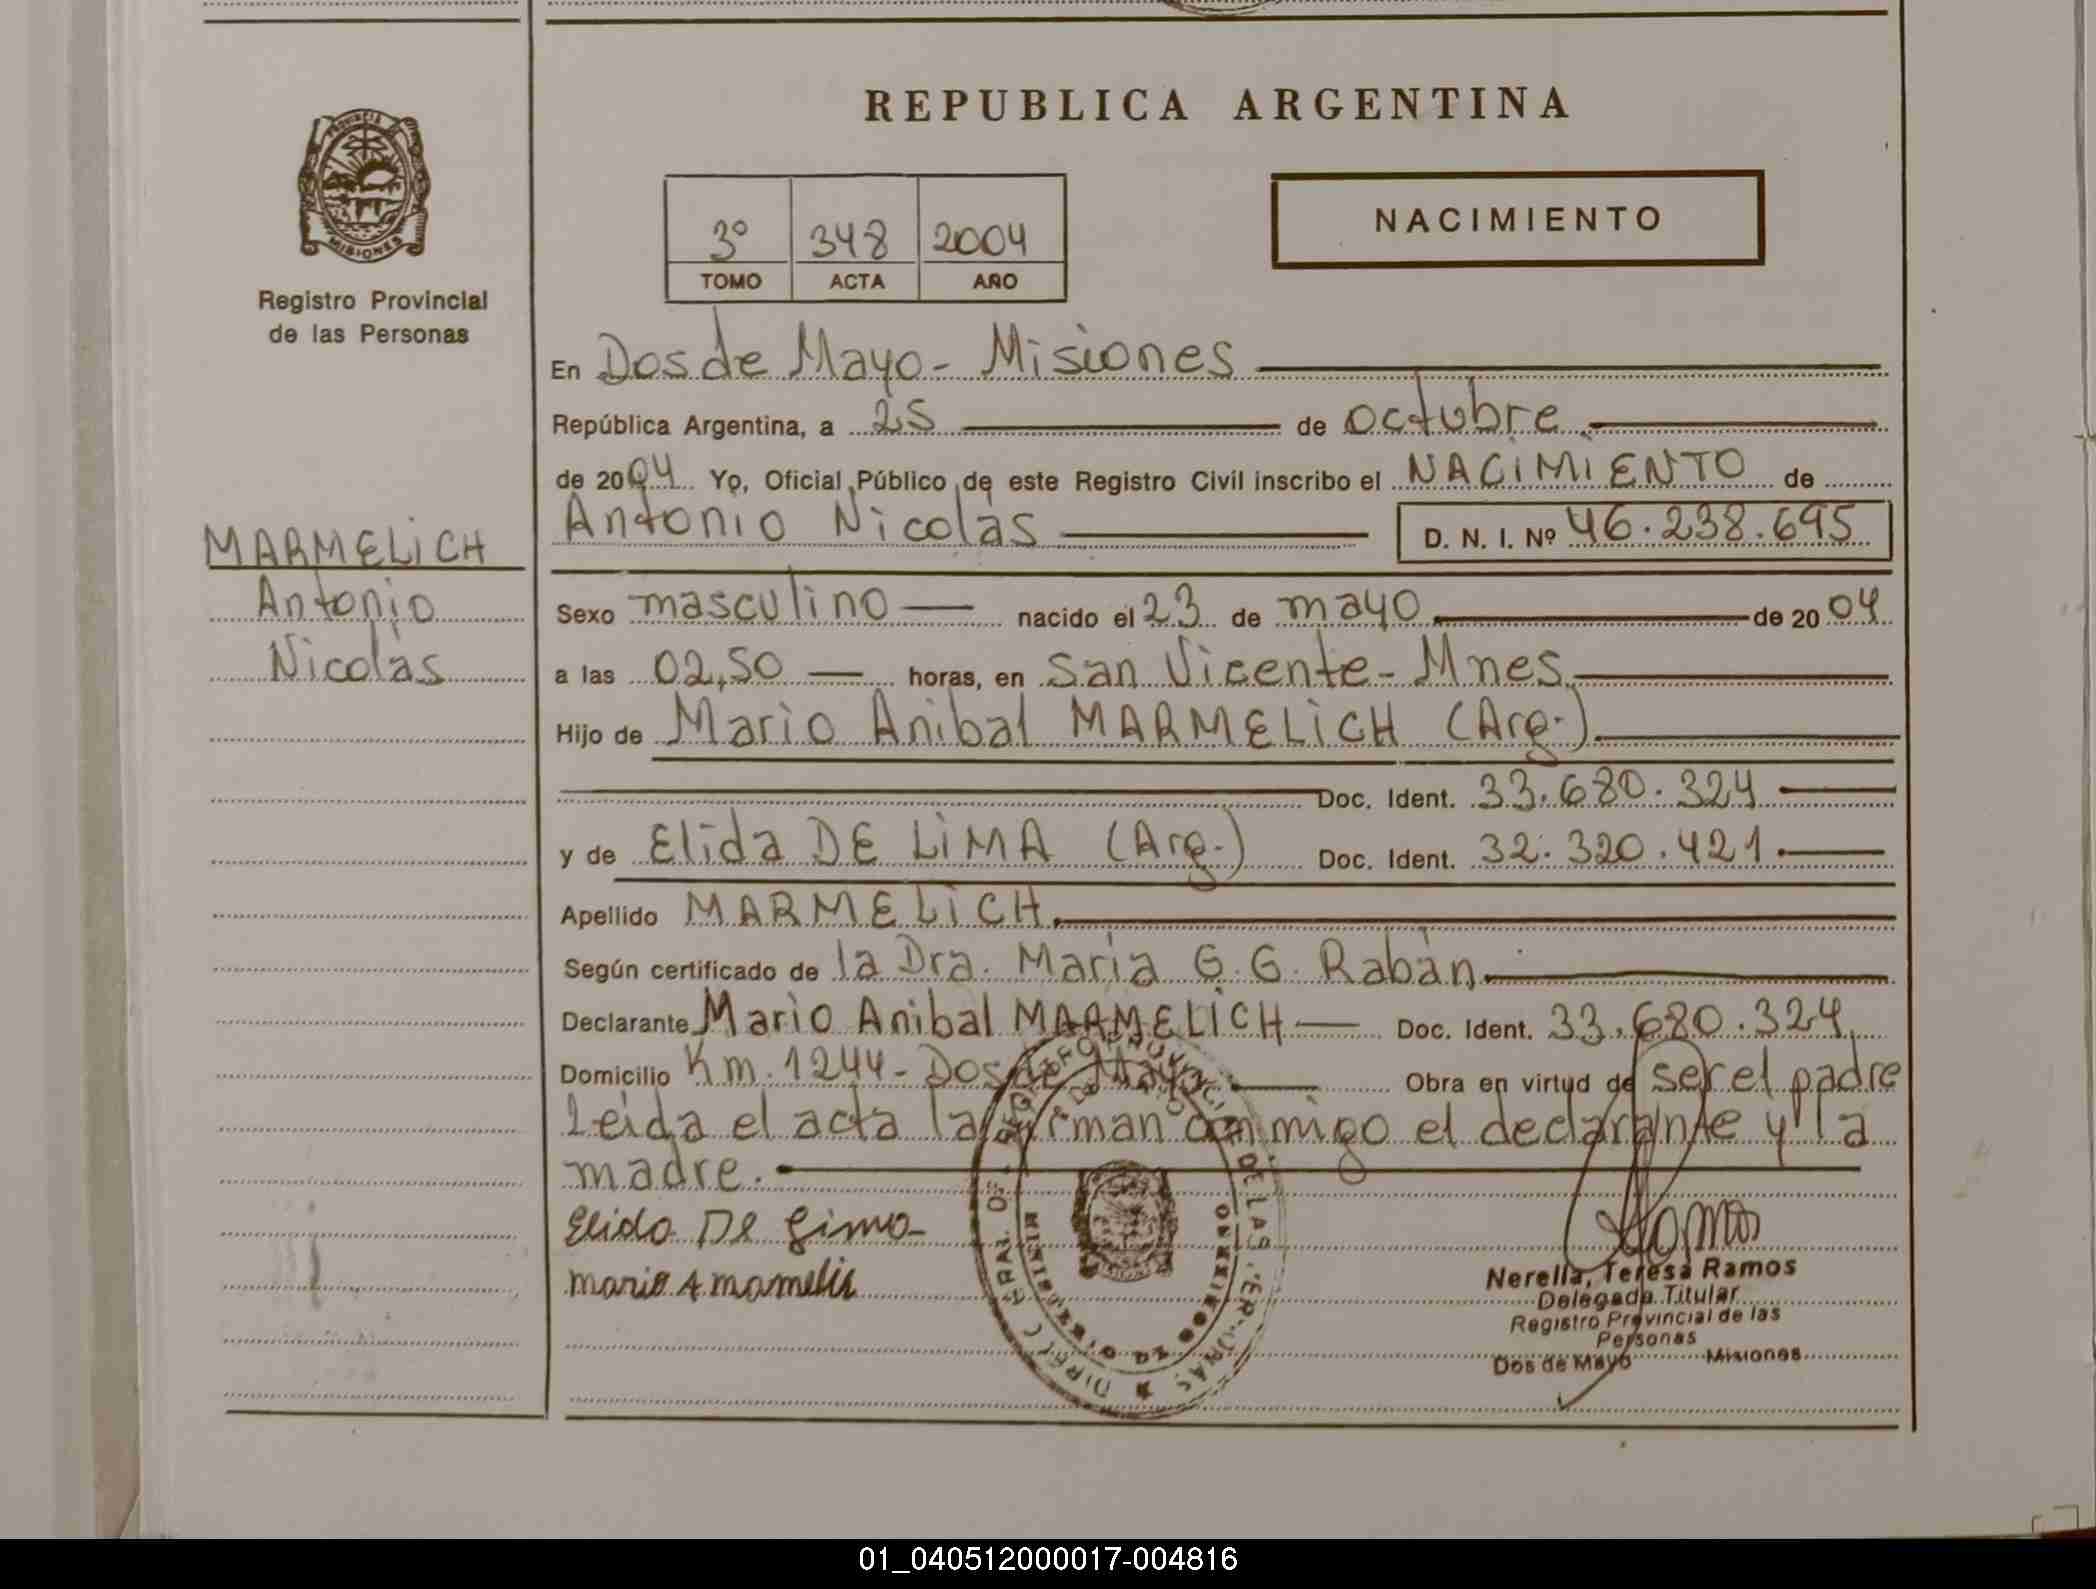 REPUBLICA ARGENTINA
PROVINCIA DE
MISIONES
Registro Provincial
de las Personas
3° 348 2004
TOMO ACTA AÑO
NACIMIENTO
En Dos de Mayo - Misiones
República Argentina, a 25 de octubre
de 2004 Yo, Oficial Público de este Registro Civil inscribo el NACIMIENTO de
Antonio Nicolás D. N. I. Nº 46.238.695
MARMELICH
Antonio
Nicolás
Sexo masculino nacido el 23 de mayo de 2004
a las 02,50 horas, en San Vicente - Mnes.
Hijo de Mario Anibal MARMELICH (Arg.)
Doc. Ident. 33.680.324
y de Elida DE LIMA (Arg.) Doc. Ident. 32.320.421
Apellido MARMELICH
Según certificado de la Dra. María G. G. Rabán
Declarante Mario Anibal MARMELICH Doc. Ident. 33.680.324
Domicilio Km. 1244 - Dos de Mayo Obra en virtud de ser el padre
Leida el acta la firman conmigo el declarante y la
madre.
Elida De Lima
mario A mamelic
Nerella, Teresa Ramos
Delegada Titular
Registro Provincial de las
Personas
Dos de Mayo Misiones
01_040512000017-004816